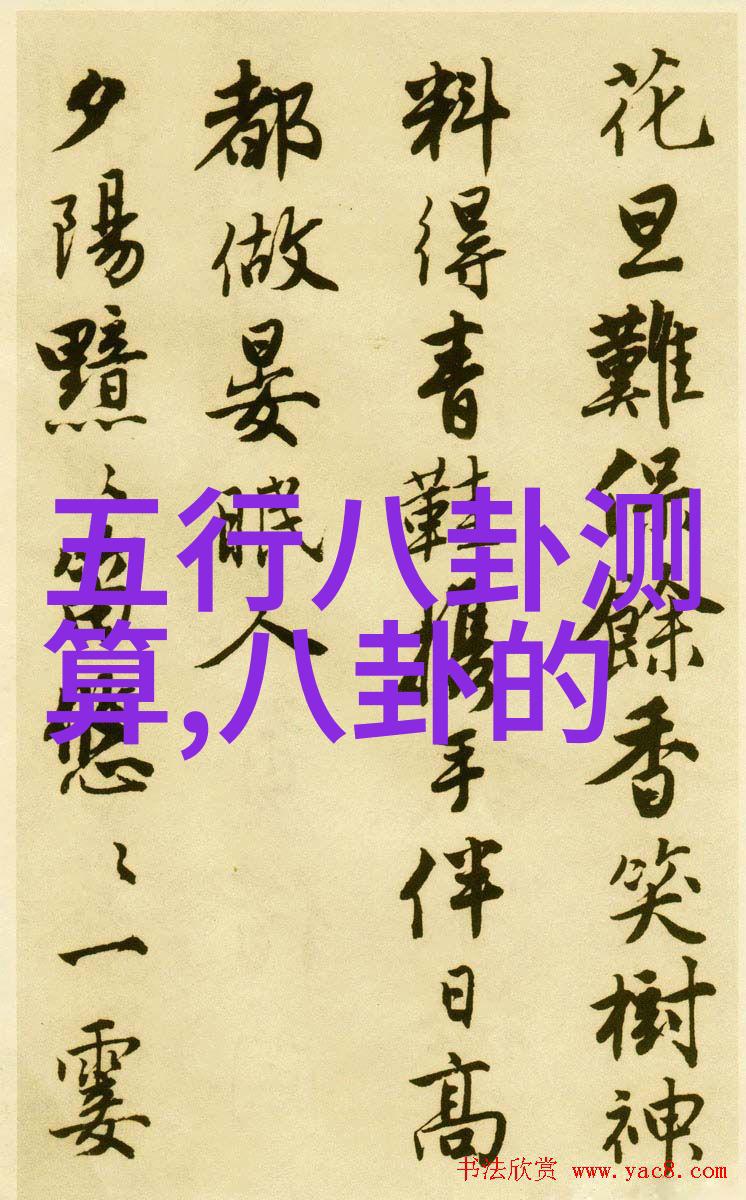 花旦難保餘香笑樹神
料得青鞋携手伴日高
都做晏眠人
夕陽黯〻 〻一霎
五行八卦测
算,八卦的
书法欣赏 www.yac8.com